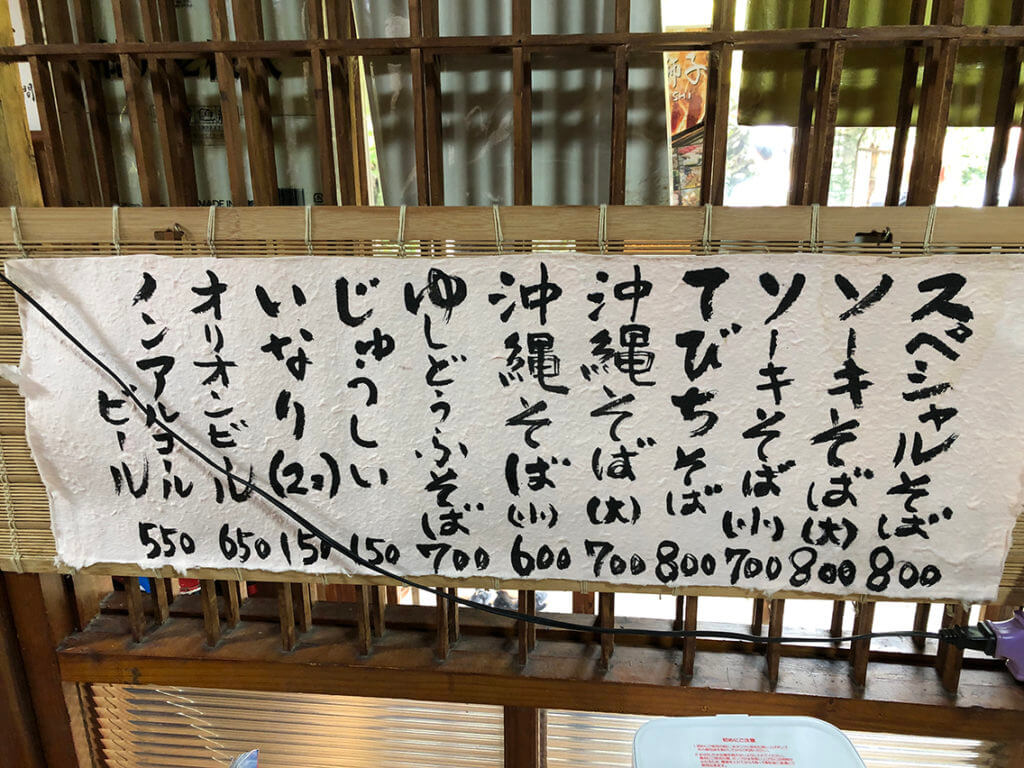 スペシャルそば 800
ソーキそば(大) 800
ソーキそば(小) 700
てびちそば 800
沖縄そば(大) 700
沖縄そば(小) 600
ゆしどうふそば 700
じゅうしい 150
いなり(2コ) 150
オリオンビール 650
ノンアルコール
ビール 550
師子
SHI
間
MADE IN
初めにご注意